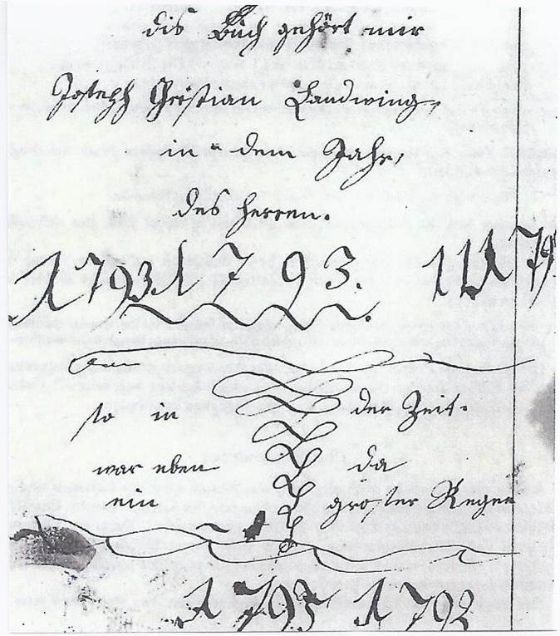 dis Buch gehört mir
Joseph Christian Landtwing,
in dem Jahr,
des herren.
1793 1793. 1 1 1 79
so in der Zeit.
war eben da
ein groster Regen
1795 1792